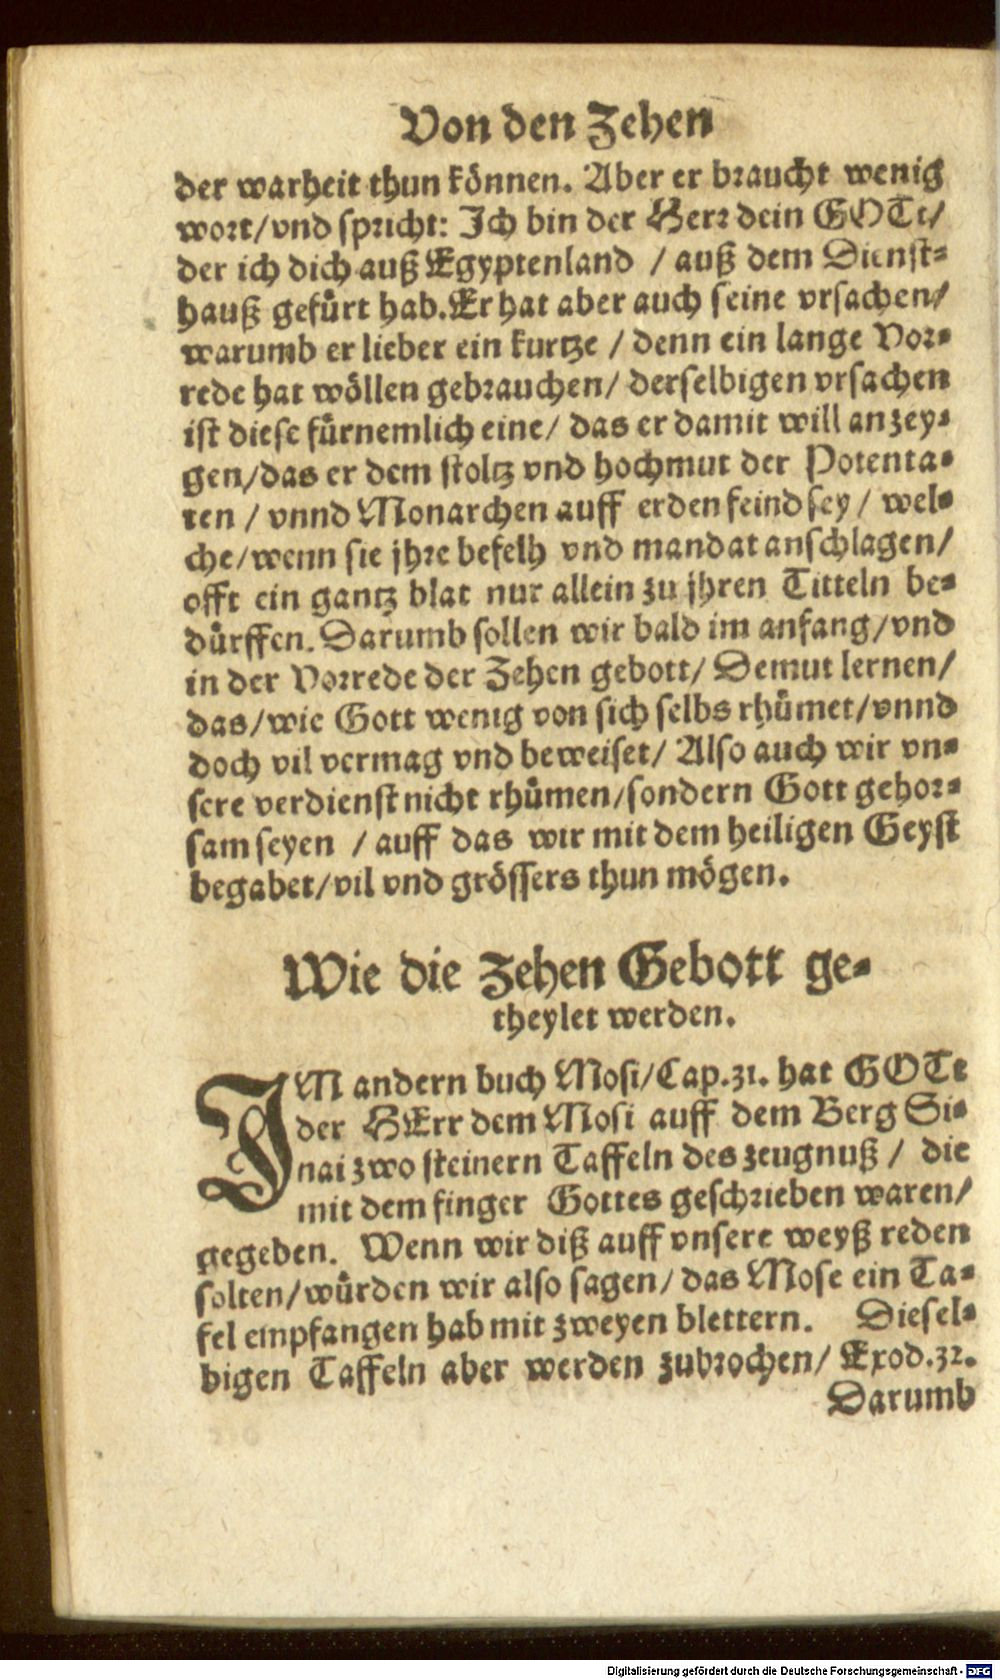 Von den Zehen
der warheit thun können. Aber er braucht wenig
wort/vnd spricht: Ich bin der Herr dein GOTt/
der ich dich auß Egyptenland / auß dem Dienst-
hauß gefürt hab. Er hat aber auch seine vrsachen/
warumb er lieber ein kurtze / denn ein lange Vor-
rede hat wöllen gebrauchen/ derselbigen vrsachen
ist diese fürnemlich eine/ das er damit will anzey-
gen/das er dem stoltz vnd hochmut der Potenta-
ten / vnnd Monarchen auff erden feind sey / wel-
che/wenn sie jhre befelh vnd mandat anschlagen/
offt ein gantz blat nur allein zu jhren Titteln be-
dürffen. Darumb sollen wir bald im anfang/vnd
in der Vorrede der Zehen gebott/ Demut lernen/
das/wie Gott wenig von sich selbs rhümet/vnnd
doch vil vermag vnd beweiset/ Also auch wir vn-
sere verdienst nicht rhümen/sondern Gott gehor-
sam seyen / auff das wir mit dem heiligen Geyst
begabet/vil vnd grössers thun mögen.
Wie die Zehen Gebott ge-
theylet werden.
IM andern buch Mosi/Cap.31. hat GOTt
der HErr dem Mosi auff dem Berg Si-
nai zwo steinern Taffeln des zeugnuß / die
mit dem finger Gottes geschrieben waren/
gegeben. Wenn wir diß auff vnsere weyß reden
solten/würden wir also sagen/ das Mose ein Ta-
fel empfangen hab mit zweyen blettern. Diesel-
bigen Taffeln aber werden zubrochen/ Exod.32.
Darumb
Digitalisierung gefördert durch die Deutsche Forschungsgemeinschaft - DFG